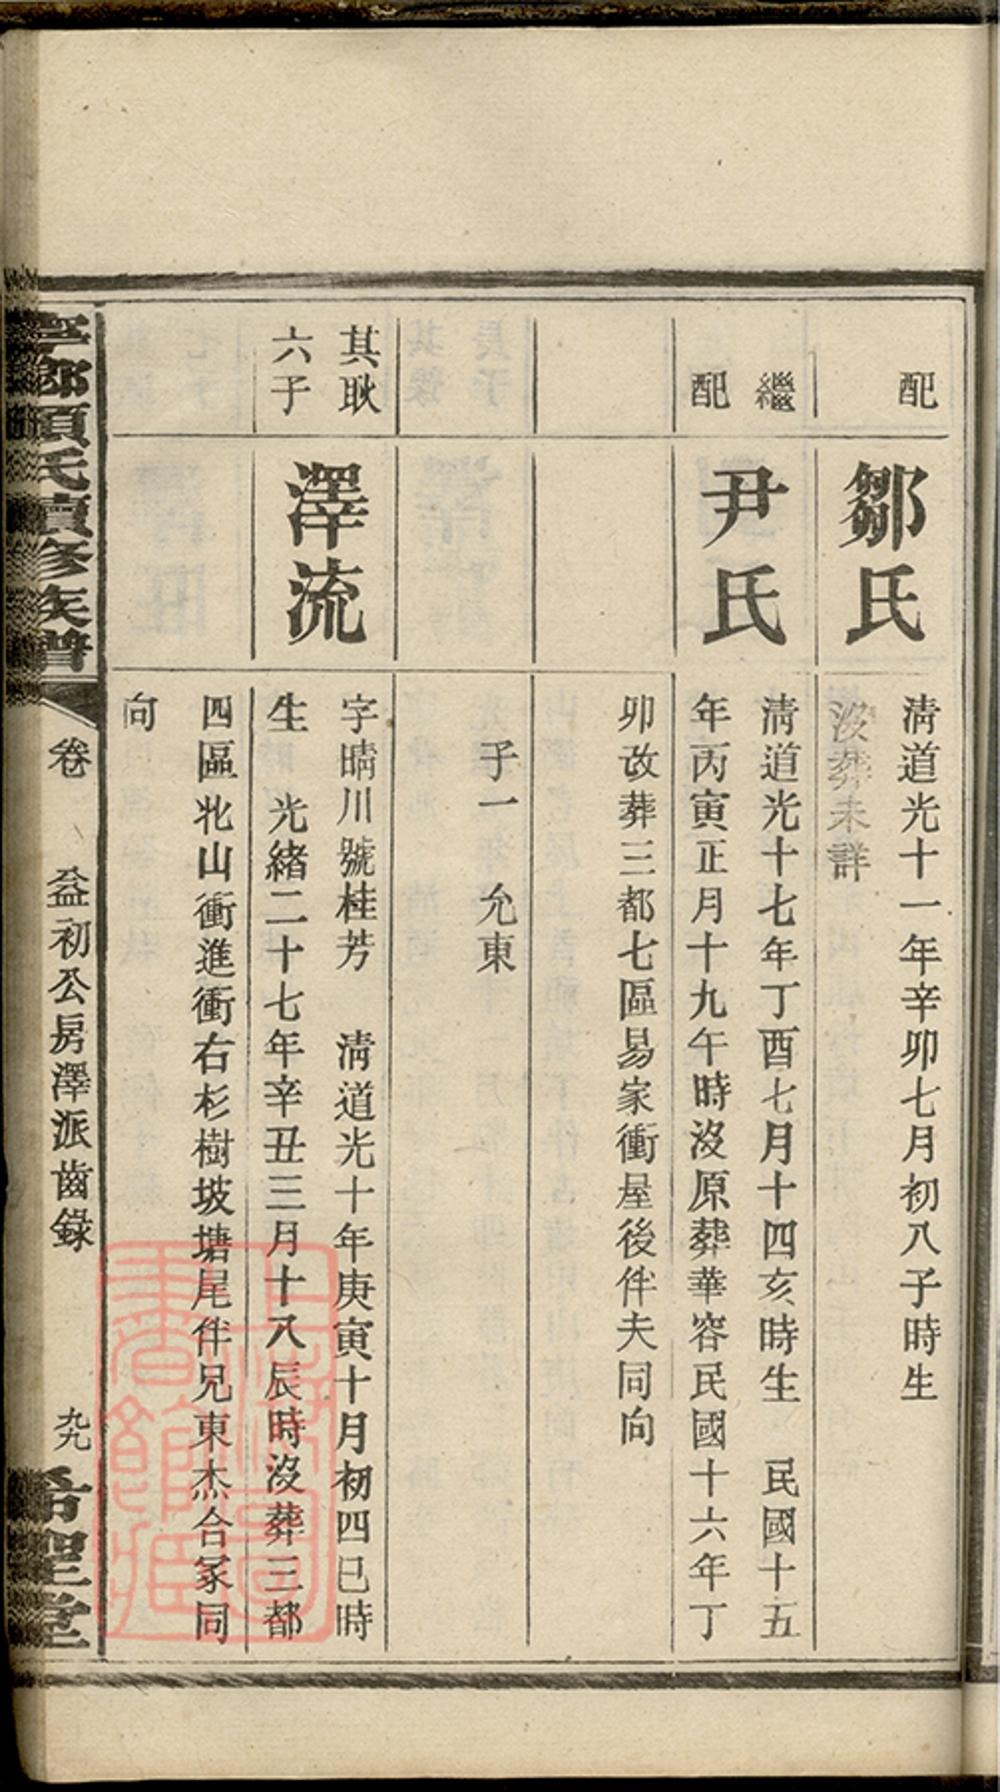 配
鄒氏
清道光十一年辛卯七月初八子時生
沒葬未詳
繼
配
尹氏
清道光十七年丁酉七月十四亥時生 民國十五
年丙寅正月十九午時沒原葬華容民國十六年丁
卯改葬三都七區易家衝屋後伴夫同向
子一 允東
其耿
六子
澤流
字晴川號桂芳 清道光十年庚寅十月初四巳時
生 光緒二十七年辛丑三月十八辰時沒葬三都
四區北山衝進衝右杉樹坡塘尾伴兄東杰合冢同
向
項氏續修族譜
卷 益初公房澤派齒錄
九九
希聖堂
上海圖書館藏